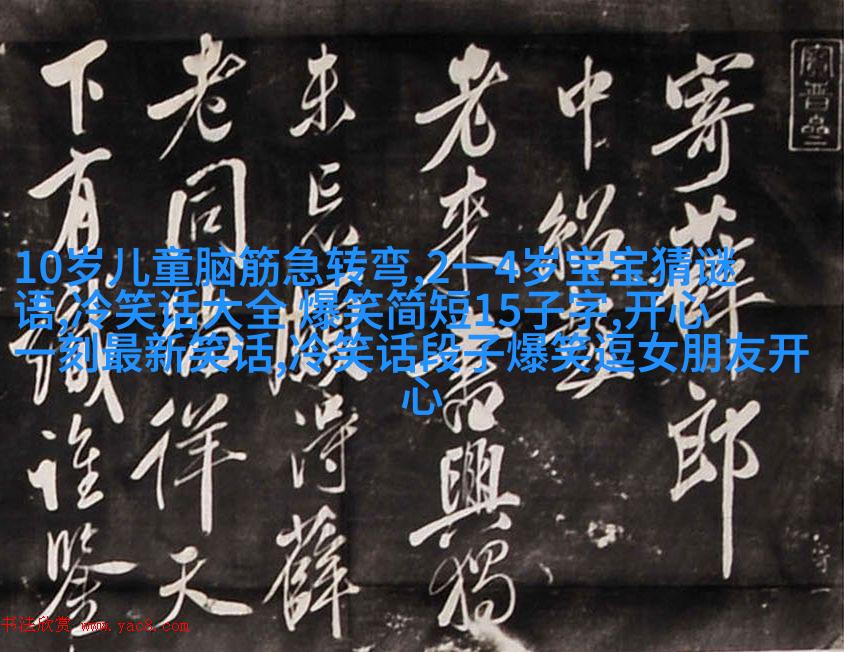 寶晉
寄薛郎
中紹彭
老来書興獨
未忘頗得薛
老同徜徉天
下有識谁鑒
10岁儿童脑筋急转弯,2一4岁宝宝猜谜
语,冷笑话大全 爆笑简短15子字,开心
一刻最新笑话,冷笑话段子爆笑逗女朋友开
心
书法欣赏 www.yac8.com